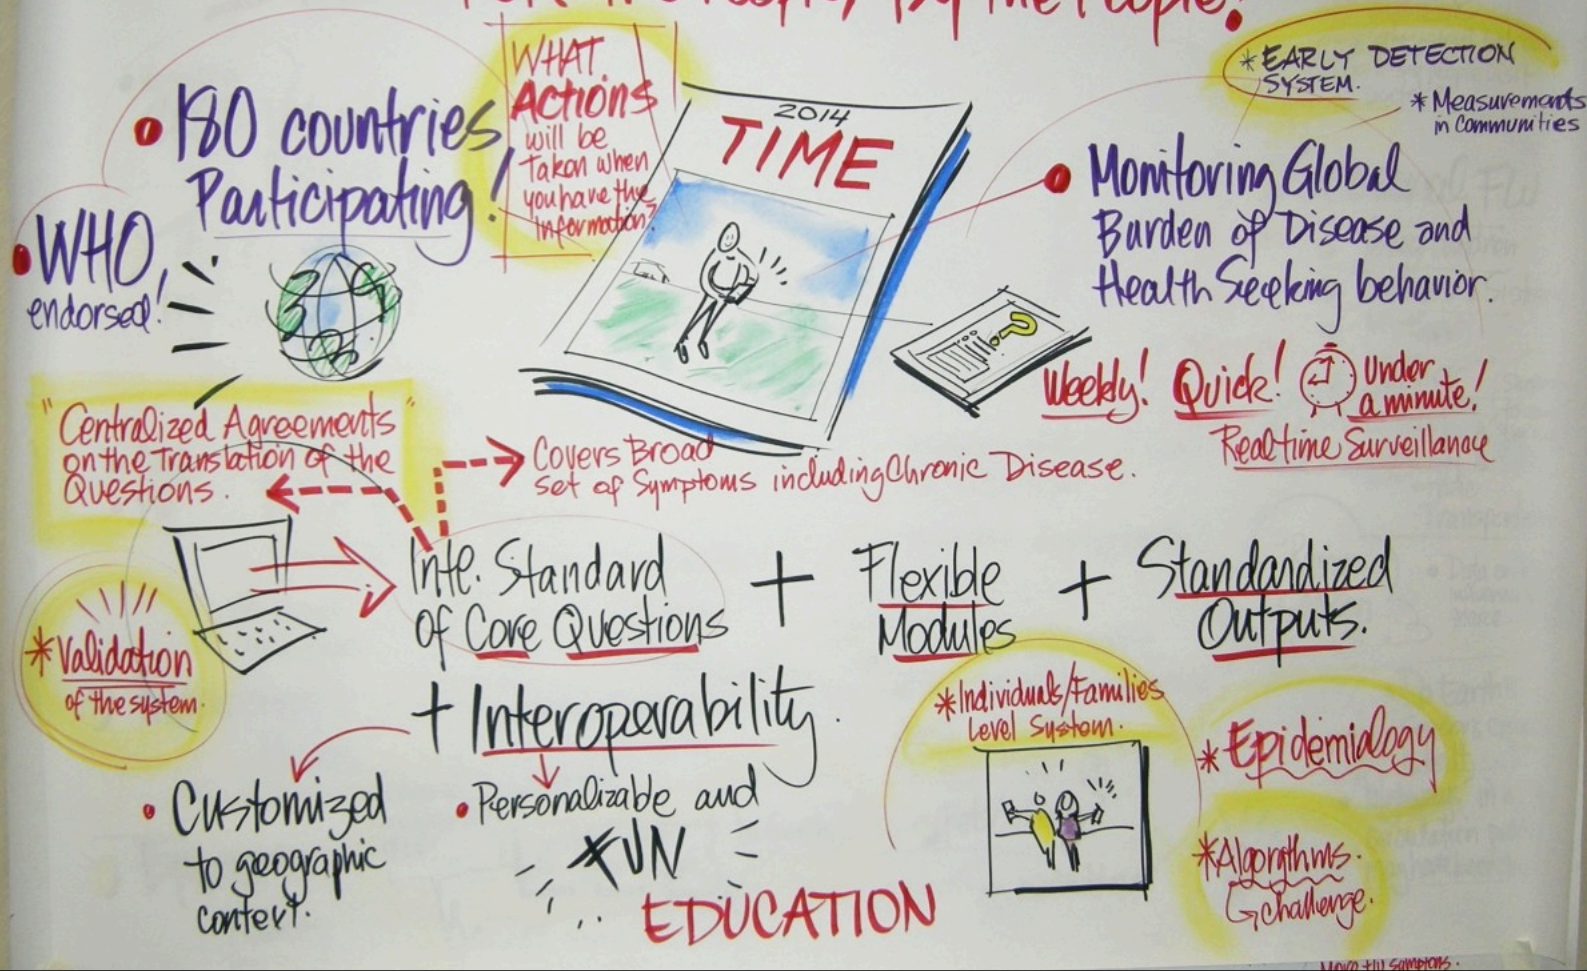 For the People, By the People!
* EARLY DETECTION
SYSTEM.
* Measurements
in Communities
WHAT
Actions
will be
Taken when
you have the
Information?
• 180 countries
Participating!
• WHO
endorsed!
2014
TIME
• Monitoring Global
Burden of Disease and
Health Seeking behavior.
?
Weekly! Quick! Under
a minute!
Realtime Surveillance
"Centralized Agreements"
on the Translation of the
Questions.
Covers Broad
set of Symptoms including Chronic Disease.
Inte. Standard
of Core Questions
+ Flexible
Modules
+ Standardized
Outputs.
* Validation
of the system.
+ Interoperability.
* Individuals/Families
Level System.
* Epidemialogy
• Customized
to geographic
context.
• Personalizable and
FUN
EDUCATION
* Algorythms.
challenge.
More flu symptoms.